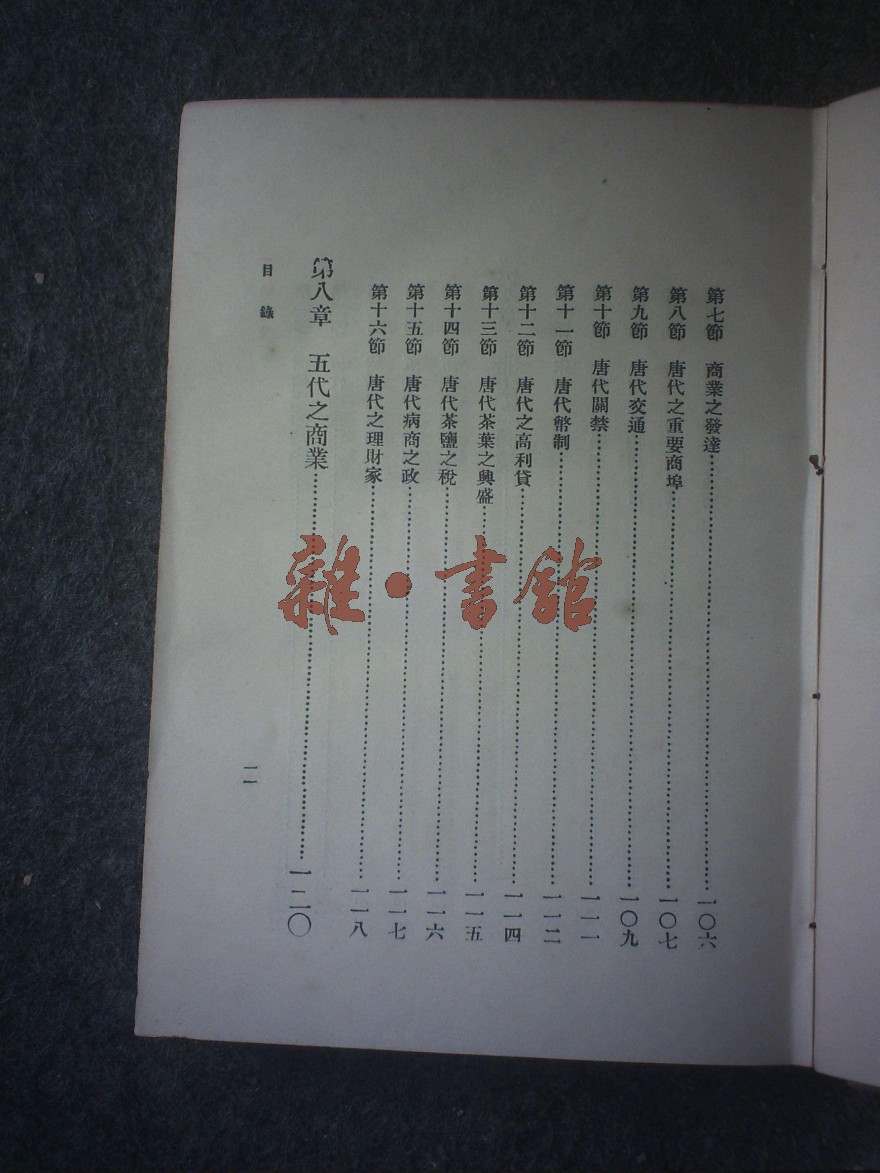 第七節　商業之發達………………一〇六
第八節　唐代之重要商埠………………一〇七
第九節　唐代交通………………一〇九
第十節　唐代關禁………………一一一
第十一節　唐代幣制………………一一二
第十二節　唐代之高利貸………………一一四
第十三節　唐代茶葉之興盛………………一一五
第十四節　唐代茶鹽之稅………………一一六
第十五節　唐代病商之政………………一一七
第十六節　唐代之理財家………………一一八
第八章　五代之商業………………一二〇
目錄
一一
雜·書館